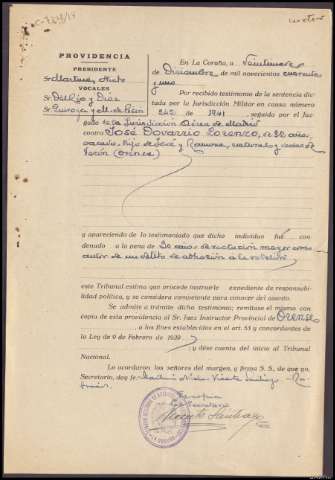 PROVIDENCIA
PRESIDENTE
Sr Martínez Nieto
VOCALES
Sr Deltijo y Diaz
En La Coruña, a Veintinueve
de Diciembre de mil novecientos cuarenta
y uno.
Por recibido testimonio de la sentencia dic-
tada por la Jurisdicción Militar en causa número
de 1941, seguida por el Juz-
gado de la Jurisdicción Aérea de Madrid
contra José Dovarrio Lorenzo, de 22 años,
casado, hijo de José y Ramona, natural y vecino de
(Orense)
y apareciendo de lo testimoniado que dicho individuo fué con-
denado a la pena de años de reclusión mayor como
autor de un delito de adhesión a la rebelión
este Tribunal estima que procede instruirle expediente de responsabi-
lidad política, y se considera competente para conocer del asunto.
Se admite a trámite dicho testimonio; remítase el mismo con
copia de esta providencia al Sr. Juez Instructor Provincial de Orense
a los fines establecidos en el art. 53 y concordantes de
la Ley de 9 de Febrero de 1939
y dése cuenta del inicio al Tribunal
Nacional.
Lo acordaron los señores del margen, y firma S. S., de que yo,
Secretario, doy fe
Es copia
El Secretario
Vicente Santiago